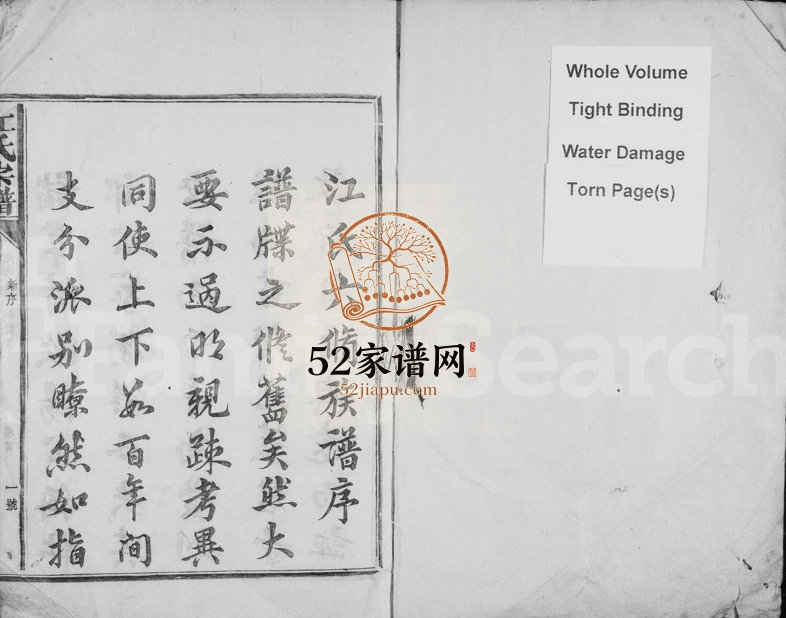 江氏六修族譜序
譜牒之修舊矣然大
要不過明親疎考異
同使上下數百年間
支分派別瞭然如指
江氏宗譜
新序
一號
Whole Volume
Tight Binding
Water Damage
Torn Page(s)
52家谱网
52jiapu.com
FamilySearch